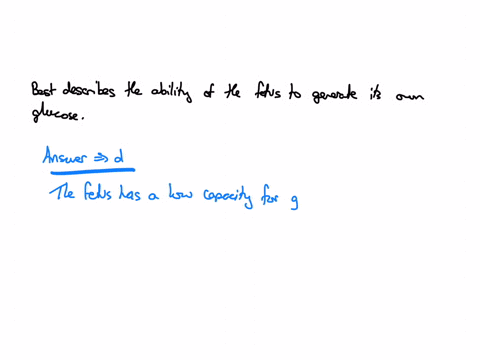 Best describes the ability of the fetus to generate its own
glucose.
Answer ⇒ d
The fetus has a low capacity for g